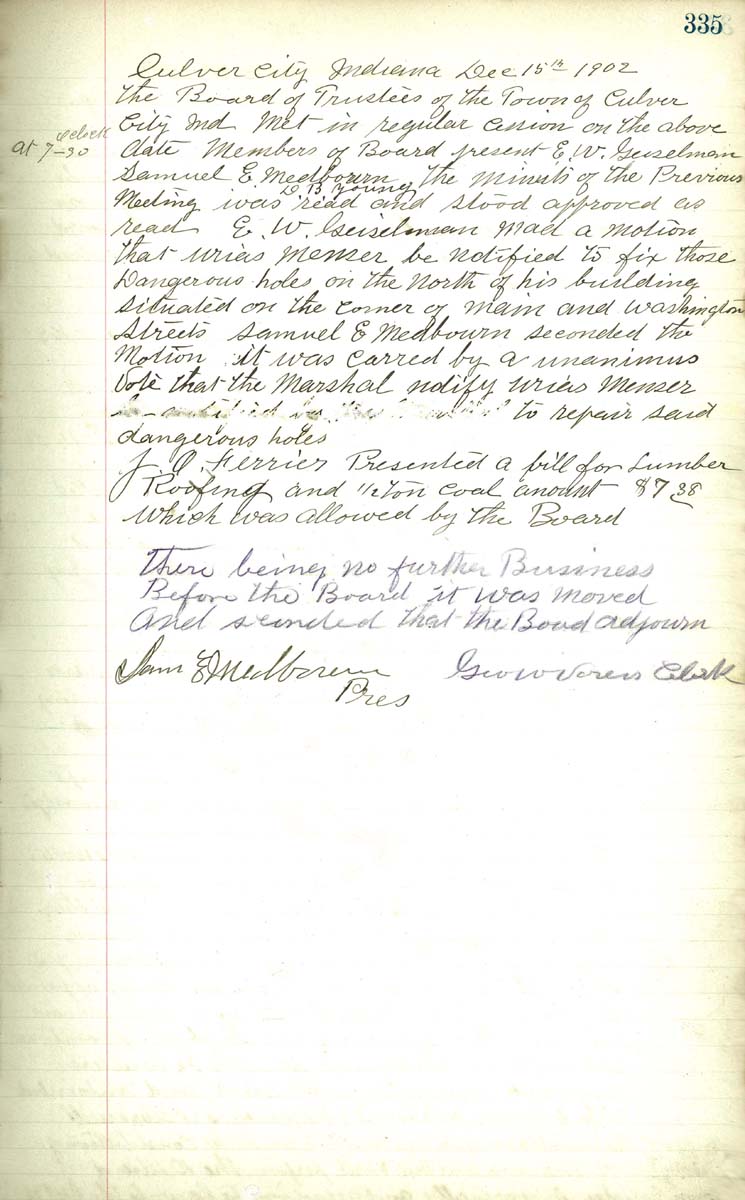 335
Culver City Indiana Dec 15th 1902
the Board of Trustees of the Town of Culver
City Ind Met in regular cession on the above
oclock
at 7-30
date Members of Board present E. W. Geiselman
Samuel E. Medbourn the minuts of the Previous
D B Young
Meeting was read and stood approved as
read E. W. Geiselman mad a motion
that urias Menser be notified to fix those
Dangerous holes on the North of his building
situated on the corner of Main and Washington
Streets Samuel E Medbourn seconded the
Motion it was carred by a unanimus
Vote that the Marshal notify urias Menser
to repair said
dangerous holes
J. O. Ferrier Presented a bill for Lumber
Roofing and 1/2 ton coal amount $7 38
which was allowed by the Board
there being no further Business
Before the Board it was moved
And seconded that the Board adjourn
Sam E Medbourn
Geo W Voreis Clerk
Pres